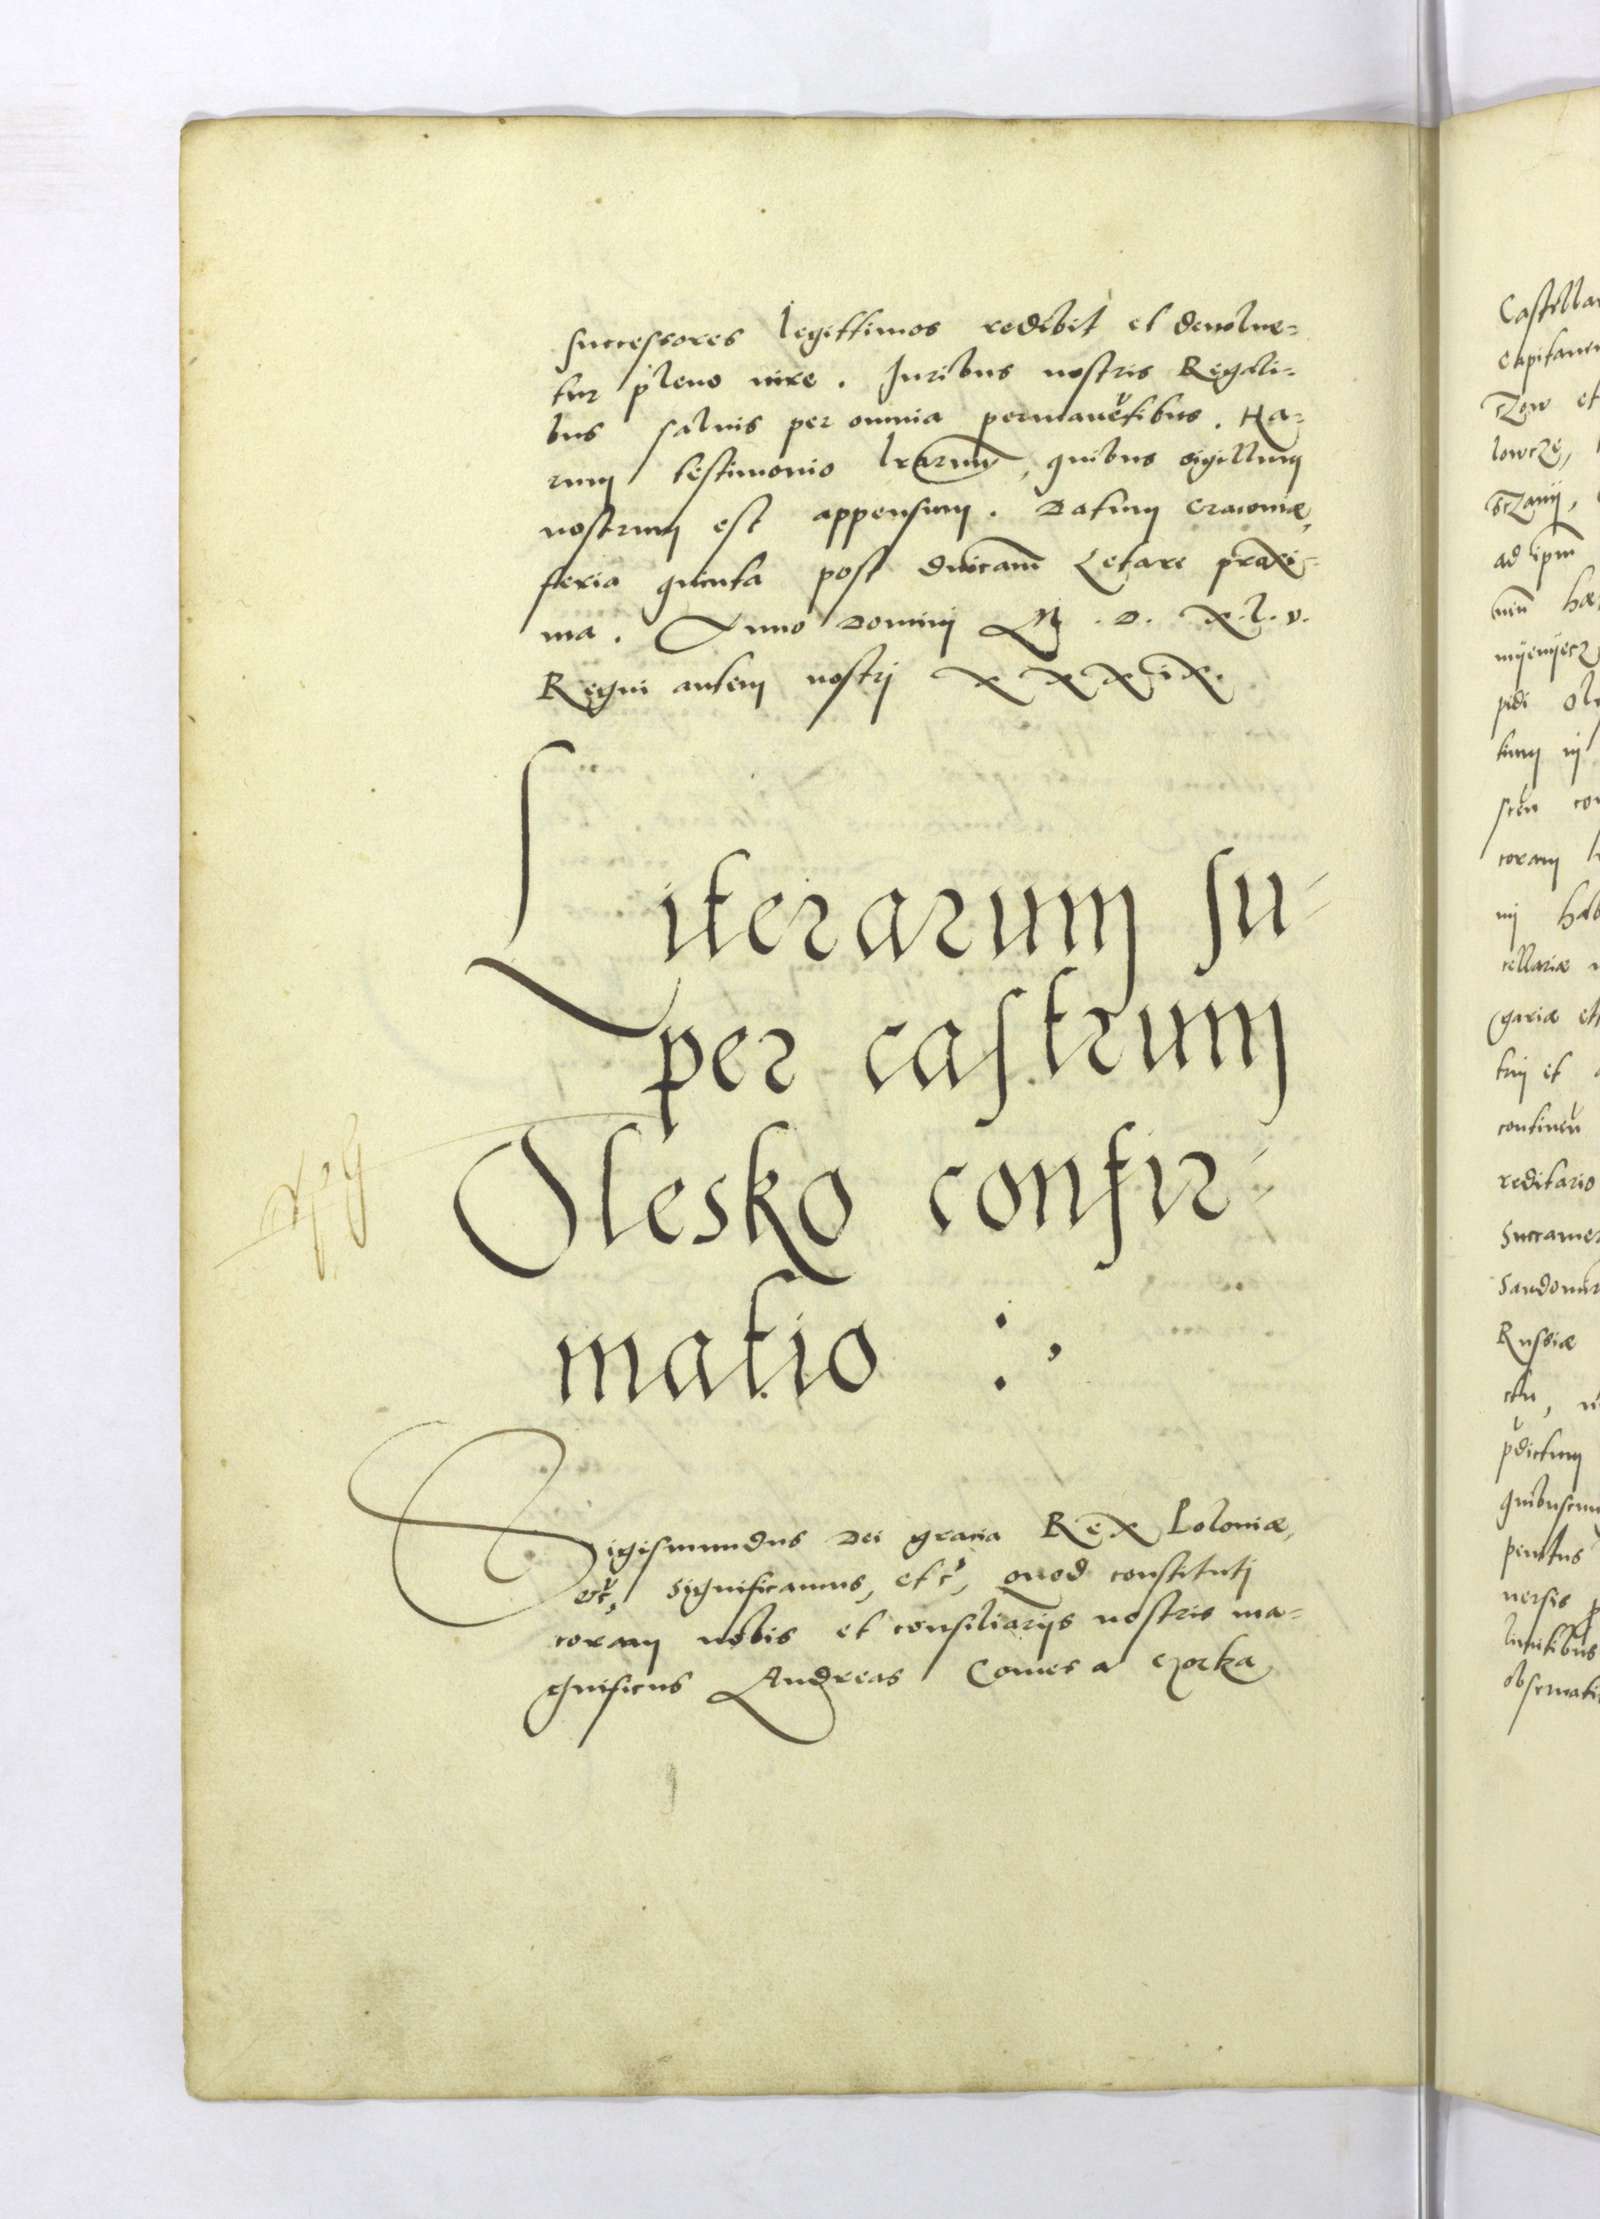 successores legittimos redibit et deuolue=
tur pleno iure. Iuribus nostris Regali=
bus saluis per omnia permanētibus. Ha=
rum testimonio lrarum, quibus sigillum
nostrum est appensum. Datum Cracouiæ,
feria quinta post dnicam Letare proxi=
ma. Anno Domini M. D. X.L.V.
Regni autem nostri XXXIX.
Literarum su=
per castrum
Olesko confir=
matio :,
Sigismundus Dei gratia Rex Poloniæ,
etc, Significamus, etc, Quod constituti
coram nobis et consiliarijs nostris ma=
gnificus Andreas Comes a Gorka
Castella
capitane
czow et
lowcze,
sczanij,
ad ipm
num hæ
mijenijecz
pidi Ole
tum in
scen con
coram
ni hab
cellariæ
gariæ et
tui et
continen
reditario
Succamer
Sandomir
Russiæ
ctu,
pdictum
quibuscun
penitus
uersis
limitibus
obseruati